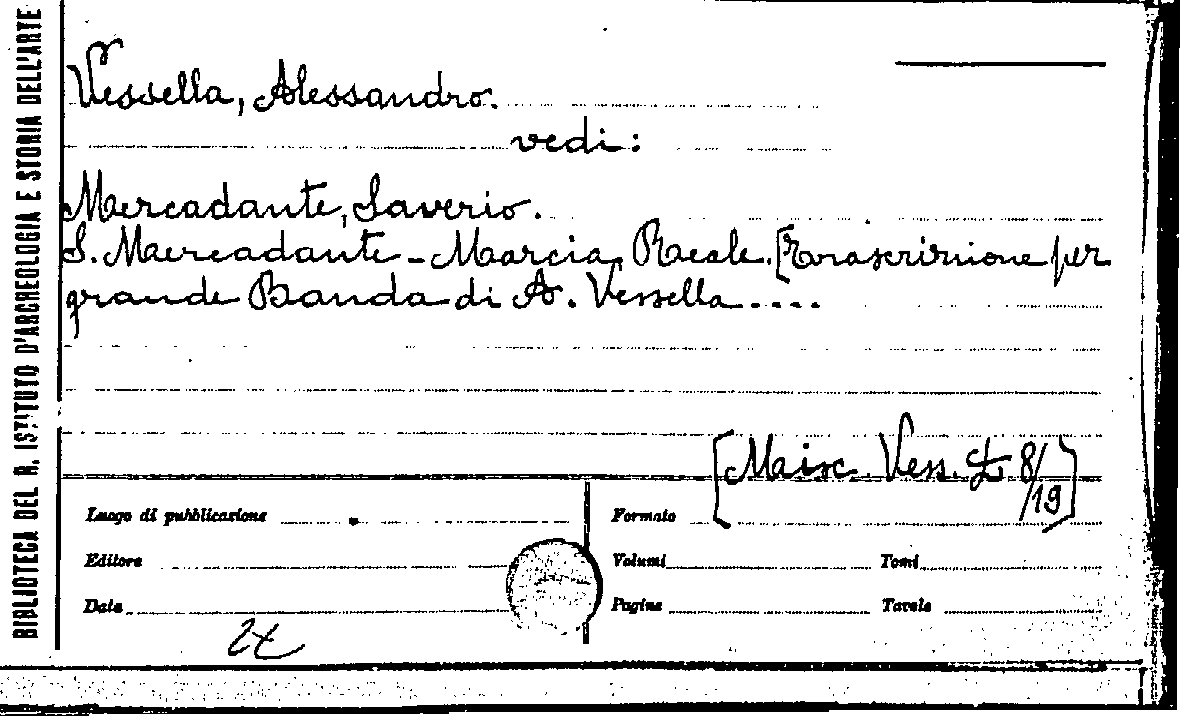 BIBLIOTECA DEL R. ISTITUTO D'ARCHEOLOGIA E STORIA DELL'ARTE
Vessella, Alessandro.
vedi:
Mercadante, Saverio.
S. Mercadante - Marcia Reale. [Trascrizione per
grande Banda di A. Vessella....
[Misc. Vess. 8/19]
Luogo di pubblicazione
Formato
Editore
Volumi
Tomi
Data
Pagine
Tavole